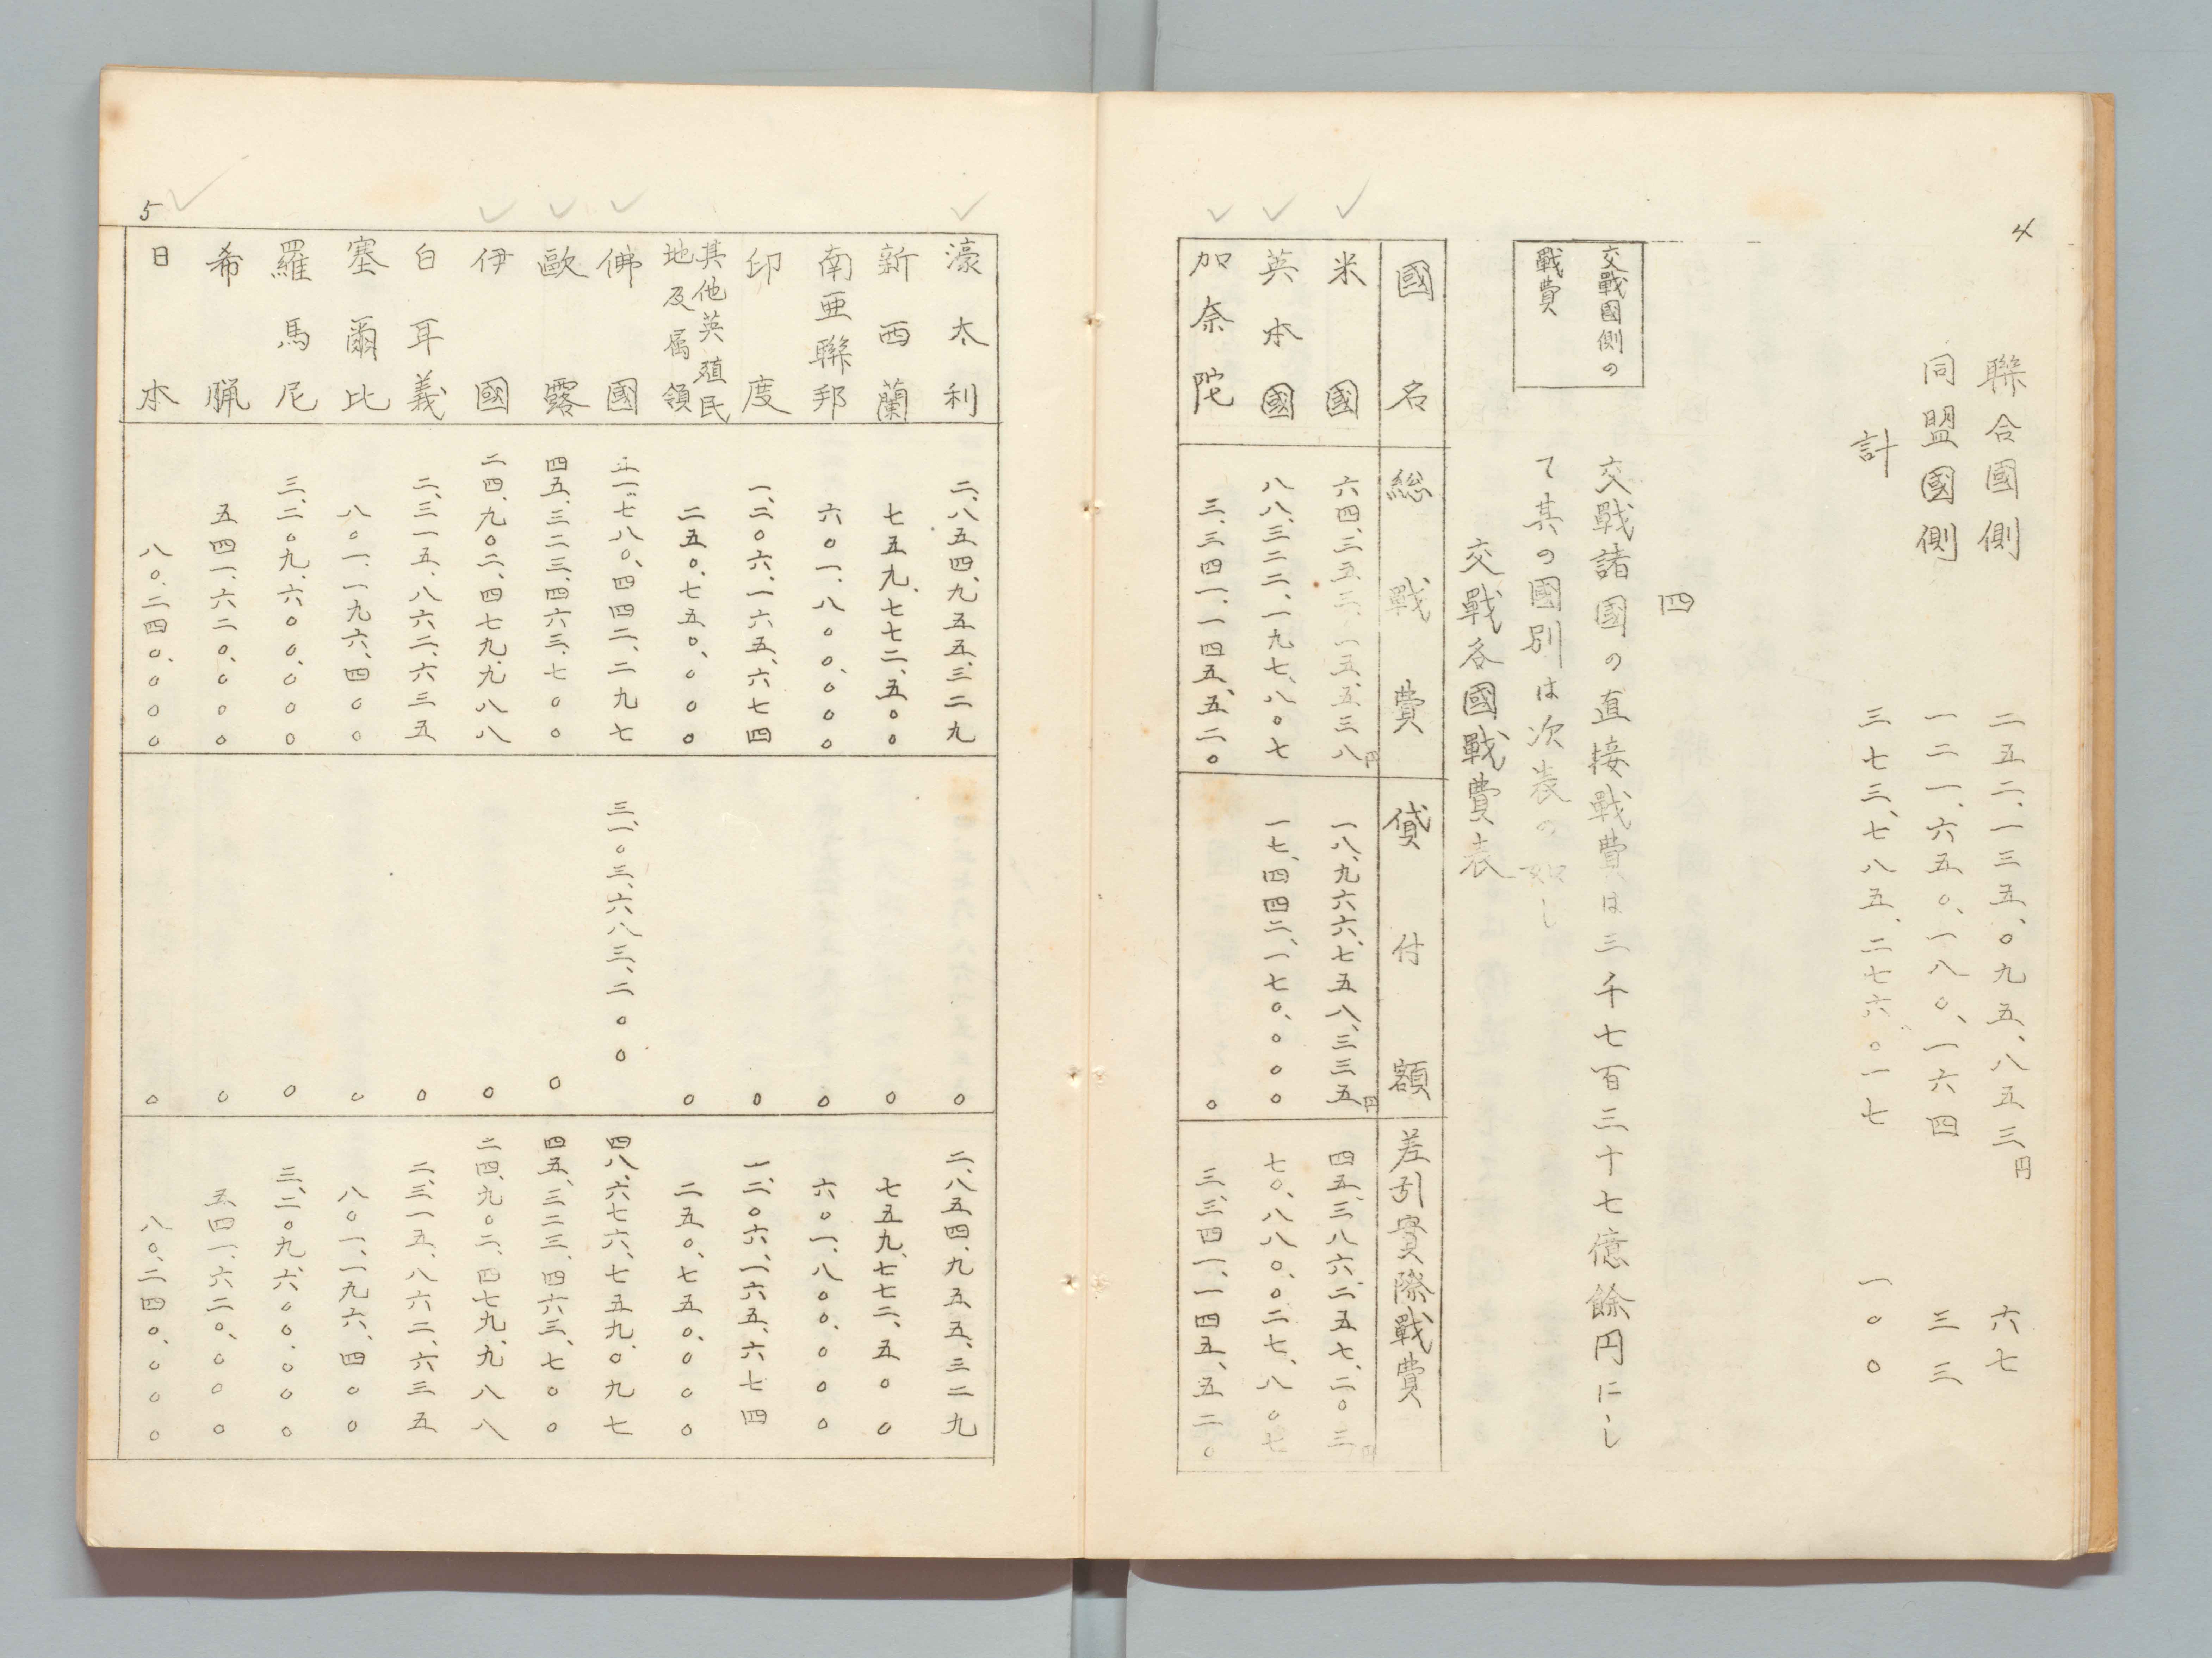 4
聯合國側 二五二、一三五、〇九五、八五三円 六七
同盟國側 一二一、六五〇、一八〇、一六四 三三
計 三七三、七八五、二七六、〇一七 一〇〇
四
交戰國側の
戰費
交戰諸國の直接戰費は三千七百三十七億餘円にし
て其の國別は次表の如し
交戰各國戰費表
國名 総戰費 貸付額 差引實際戰費
米國 六四、三五三、一五、五三八円 一八、九六六、七五八、三三五円 四五、三八六、二五七、二〇三円
英本國 八八、三二二、一九七、八〇七 一七、四四二、一七〇、〇〇〇 七〇、八八〇、〇二七、八〇七
加奈陀 三、三四一、一四五、五二〇 〇 三、三四一、一四五、五二〇
濠太利 二、八五四、九五五、三二九 〇 二、八五四、九五五、三二九
新西蘭 七五九、七七二、五〇〇 〇 七五九、七七二、五〇〇
南亜聯邦 六〇一、八〇〇、〇〇〇 〇 六〇一、八〇〇、〇〇〇
印度 一、二〇六、一六五、六七四 〇 一、二〇六、一六五、六七四
其他英殖民
地及属領 二五〇、七五〇、〇〇〇 〇 二五〇、七五〇、〇〇〇
佛國 五一、七八〇、四四二、二九七 三、一〇三、六八三、二〇〇 四八、六七六、七五九、〇九七
歐露 四五、三二三、四六三、七〇〇 〇 四五、三二三、四六三、七〇〇
伊國 二四、九〇二、四七九、九八八 〇 二四、九〇二、四七九、九八八
白耳義 二、三一五、八六二、六三五 〇 二、三一五、八六二、六三五
塞爾比 八〇一、一九六、四〇〇 〇 八〇一、一九六、四〇〇
羅馬尼 三、二〇九、六〇〇、〇〇〇 〇 三、二〇九、六〇〇、〇〇〇
希臘 五四一、六二〇、〇〇〇 〇 五四一、六二〇、〇〇〇
日本 八〇、二四〇、〇〇〇 〇 八〇、二四〇、〇〇〇
5